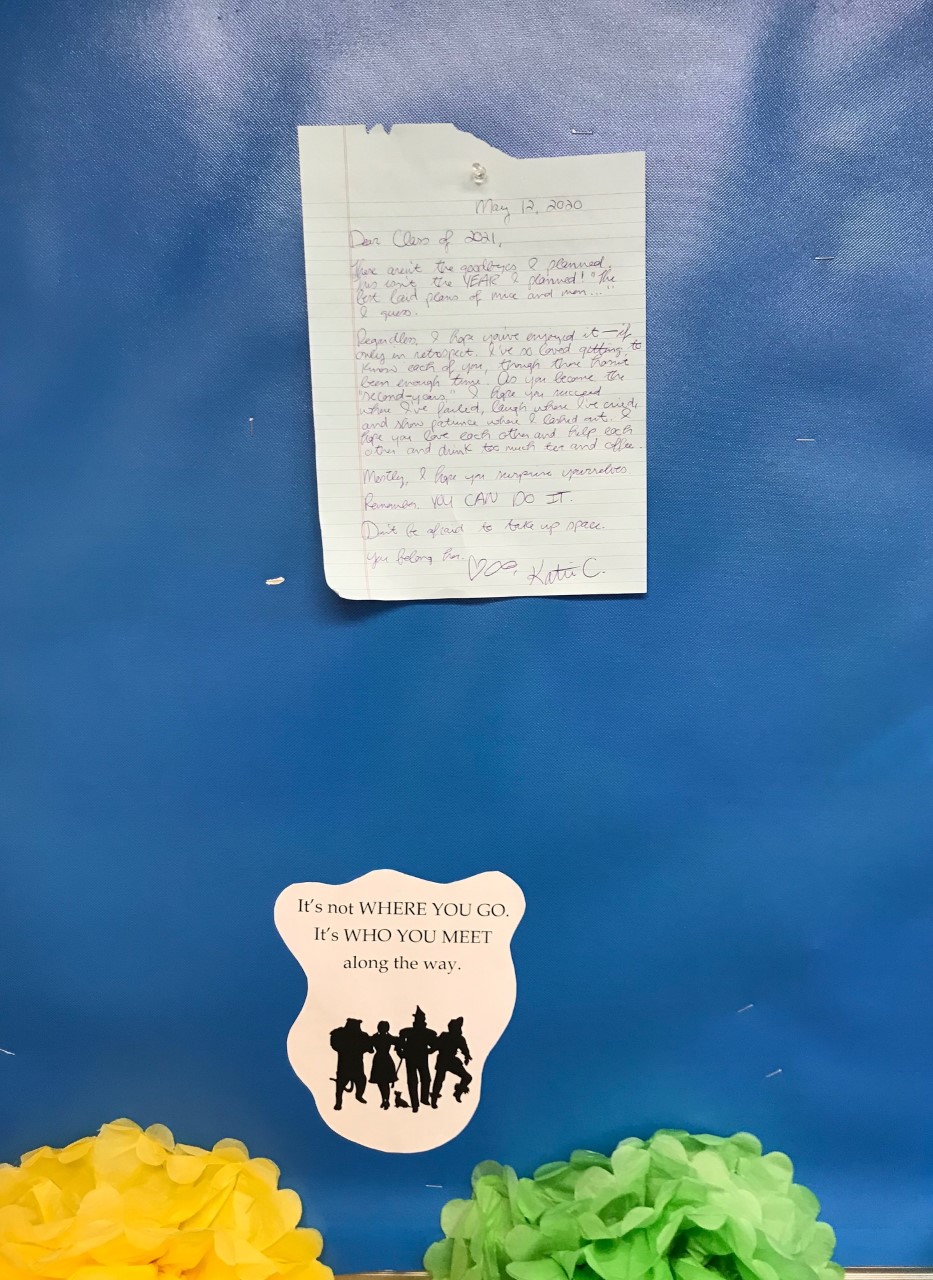 May 12, 2020
Dear Class of 2021,
These aren't the goodbyes I planned,
this isn't the YEAR I planned! "The
best laid plans of mice and men..."
I guess.
Regardless, I hope you've enjoyed it—if
only in retrospect. I've so loved getting to
know each of you, though there hasn't
been enough time. As you become the
"second-years" I hope you succeed
where I've failed, laugh where I've cried,
and show patience where I lashed out. I
hope you love each other and help each
other and drink too much tea and coffee.
Mostly, I hope you surprise yourselves
Remember YOU CAN DO IT.
Don't be afraid to take up space.
You belong here.
Katie C.
It's not WHERE YOU GO.
It's WHO YOU MEET
along the way.